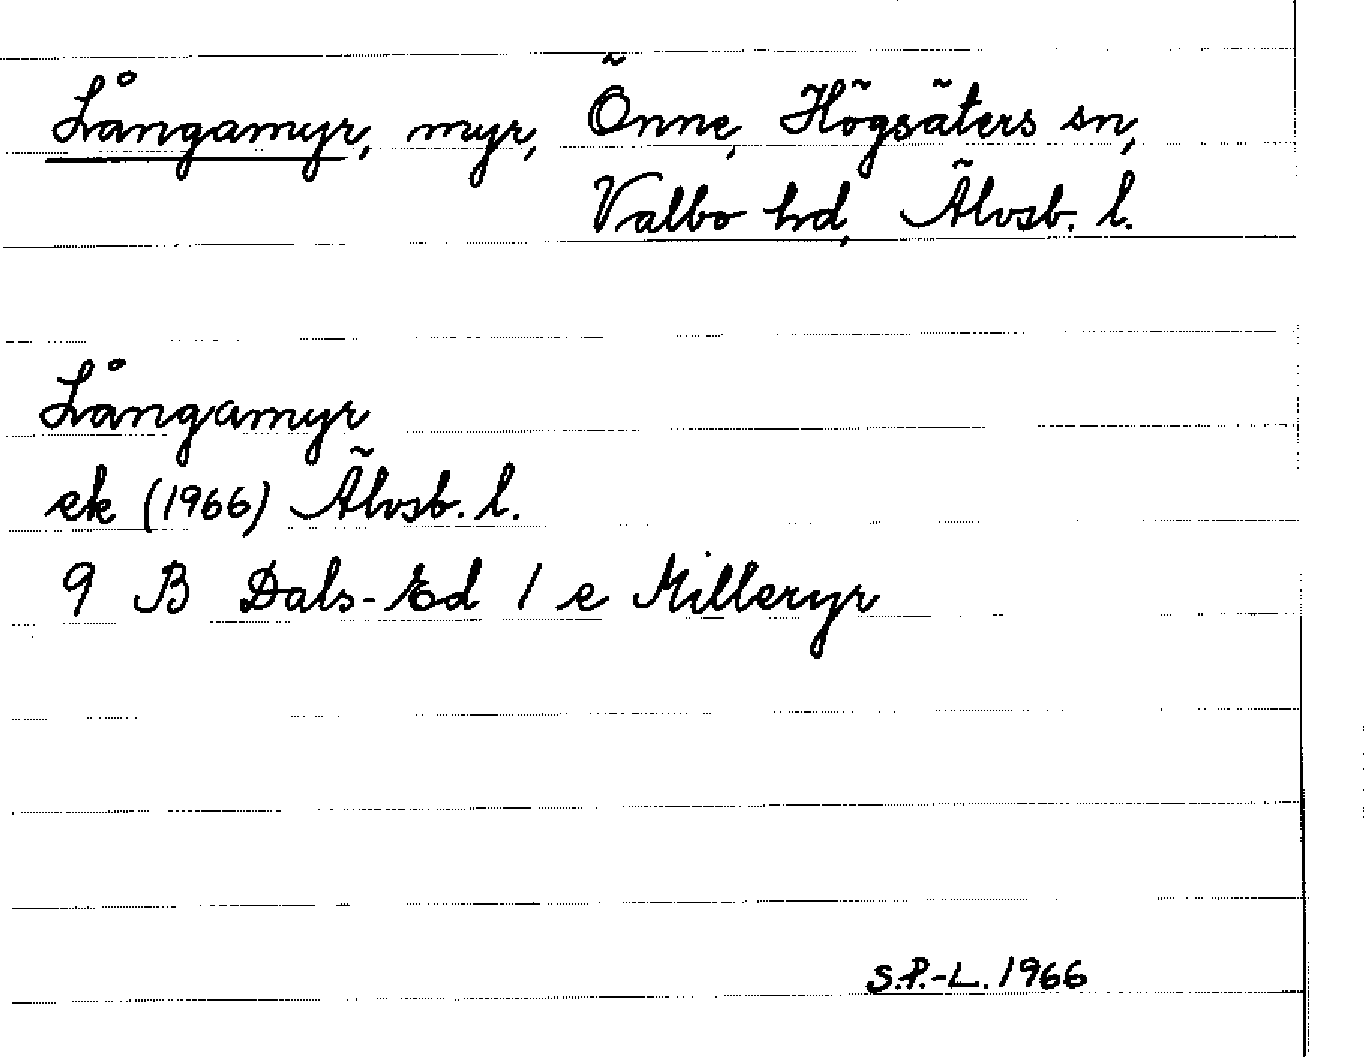 Långamyr, myr, Önne, Högsäters sn,
Valbo hd, Älvsb. l.
Långamyr
ek (1966) Älvsb. l.
9 B Dals-Ed 1 e Milleryr
S.P.-L. 1966